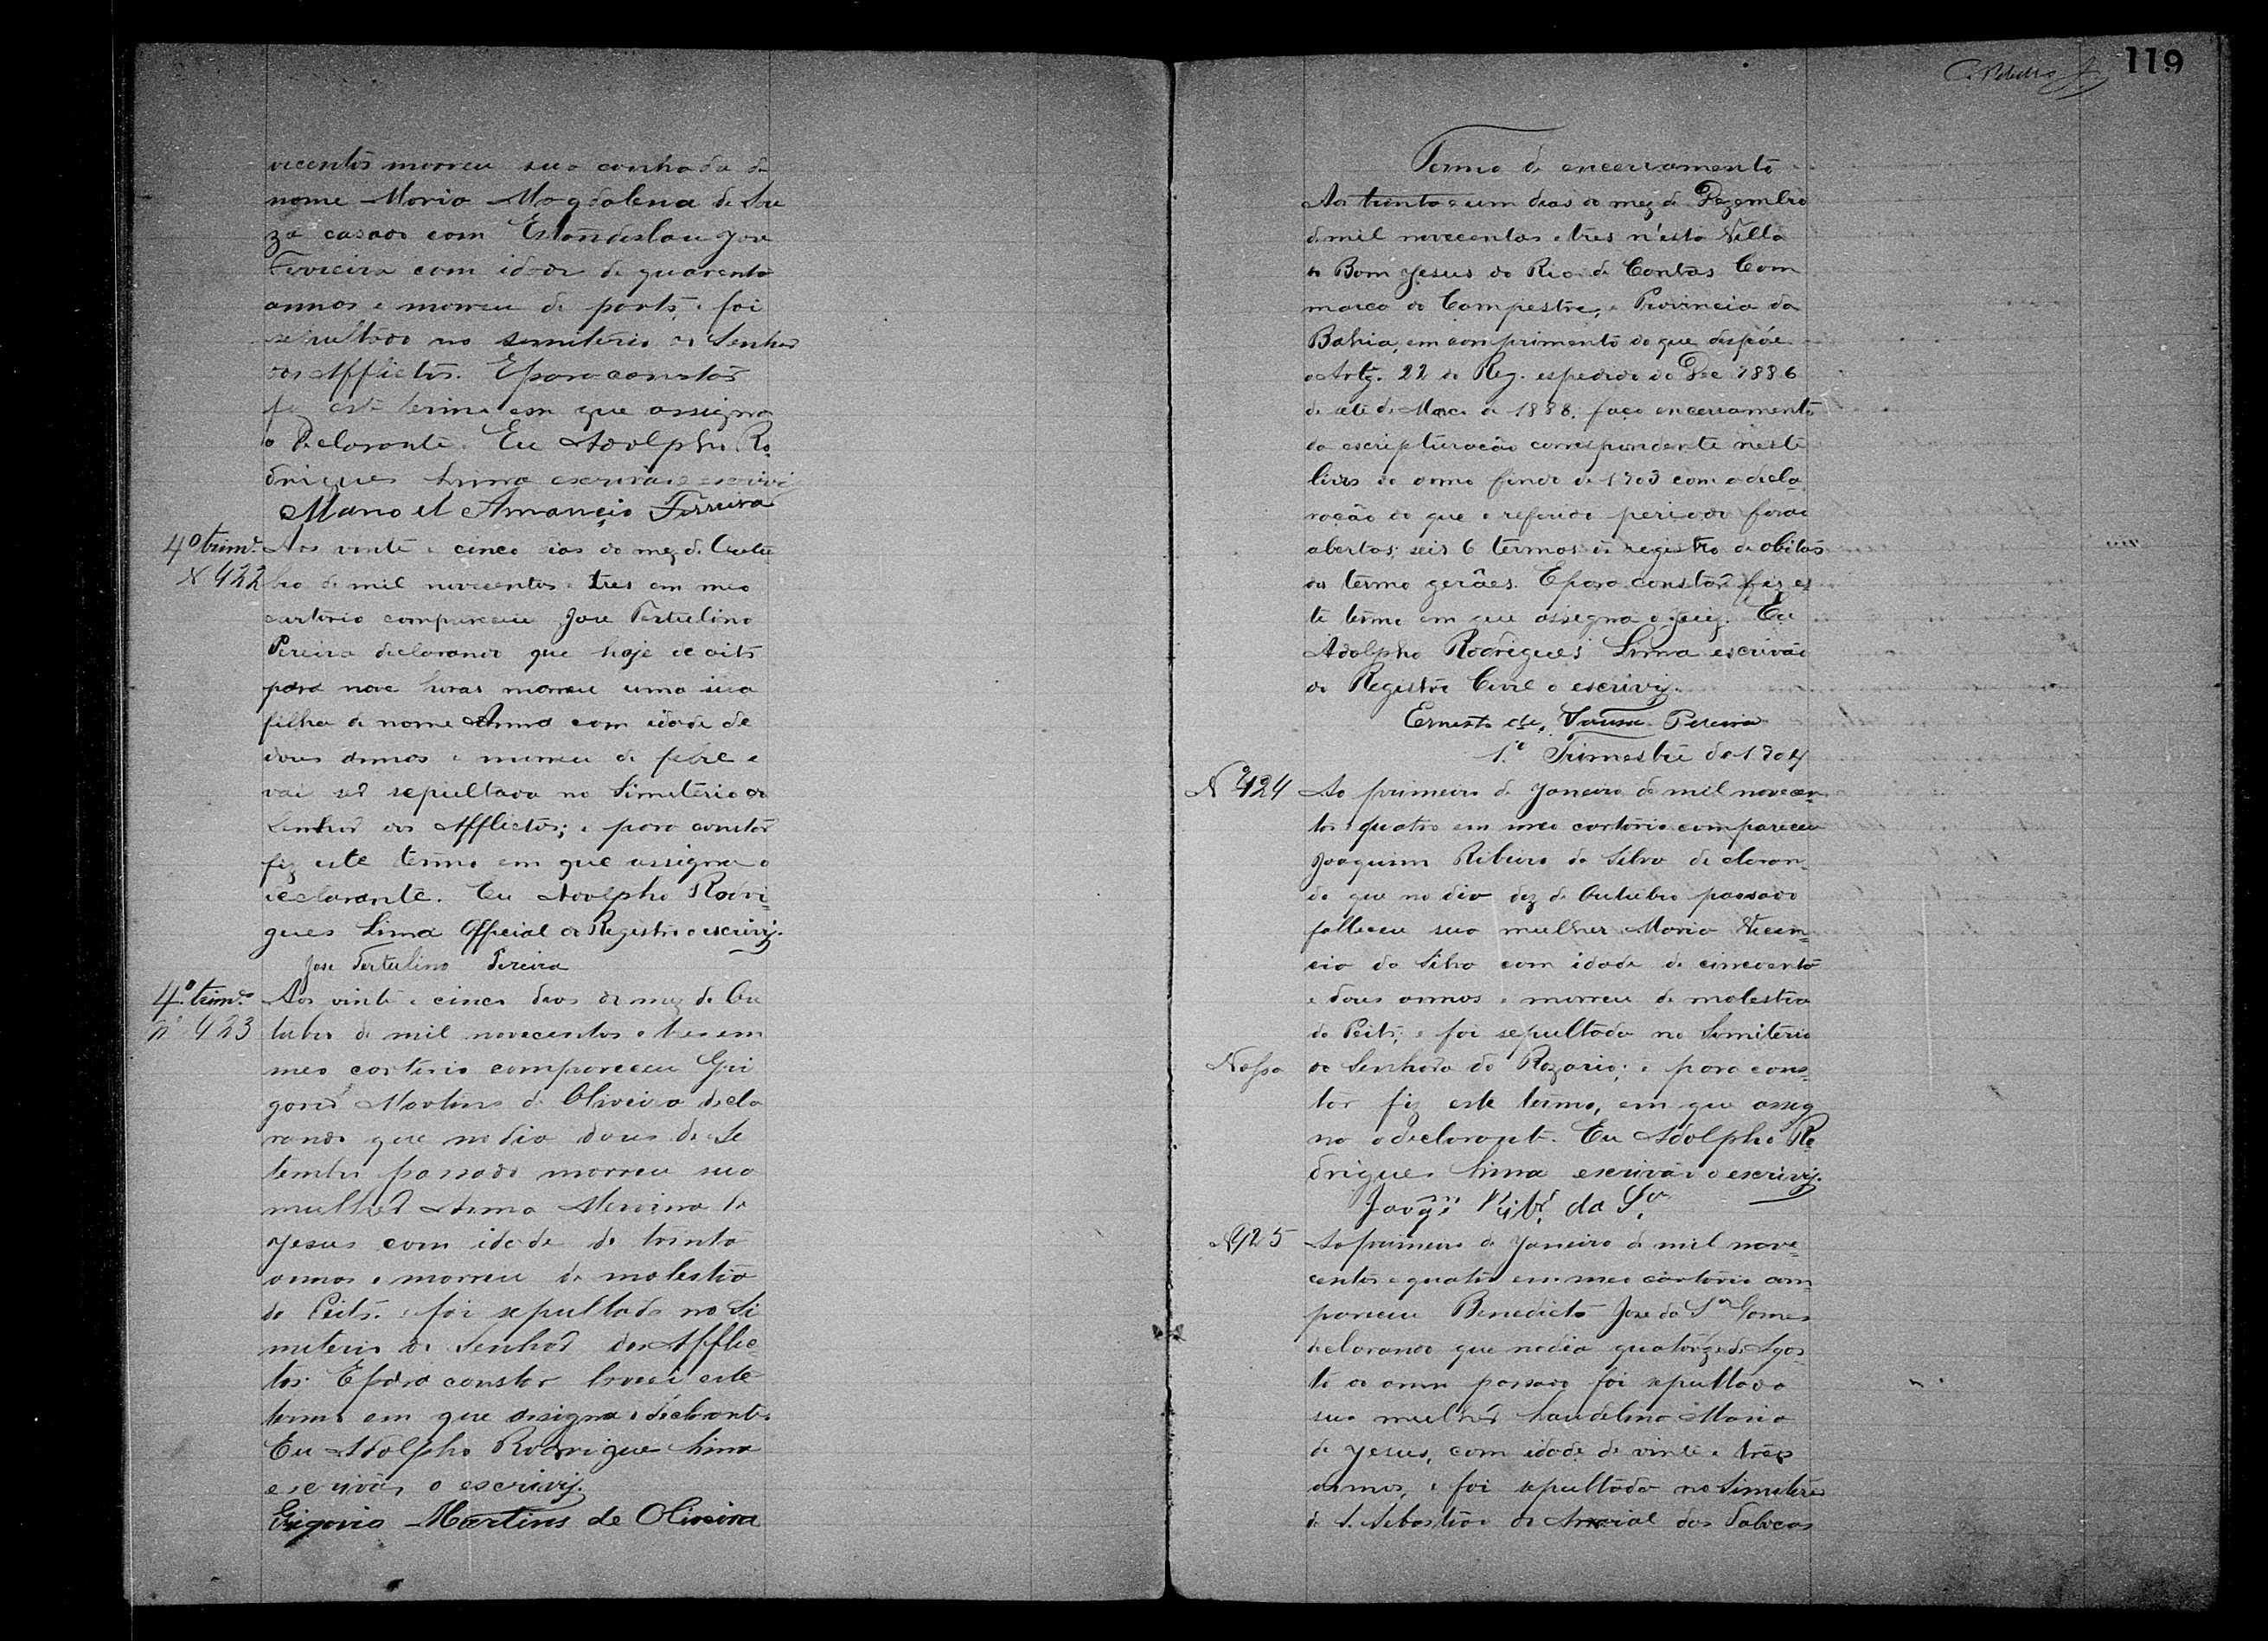 119
vecentos morreu sua cunhada de
nome Maria Magdalena de Sou
za casado com Estandislau Jose
Ferreira com idade de quarenta
annos e morreu de parto, e foi
sepultado no semiterio do Senhor
dos Afflictos. E para constar
fiz este termo em que assigna
o declarante. Eu Adolpho Ro
drigues Lima escrivão o escrivi
Manoel Amancio Ferreira
4º trim.e Aos vinte e cinco dias do mez de Outu
N 422 bro de mil novecentos e tres em meo
cartorio compareceu Jose Tertulino
Pereira declarando que hoje de oito
para nove horas morreu uma sua
filha de nome Anna com idade de
dous annos e morreu de febre e
vai ser sepultada no Simiterio do
Senhor dos Afflictos; e para constar
fiz este termo em que assigna o
declarante. Eu Adolpho Rodri=
gues Lima Official do Registro o escrivy.
Jose Tertulino Pereira
4º trim.e Aos vinte e cinco dias do mez de Ou
nº 423 tubro de mil novecentos e tres em
meo cartorio compareceu Gri
gorio Martins de Oliveira decla
rando que no dia dous de Se
tembro passado morreu sua
mulher Anna de
Jesus com idade de trinta
annos e morreu de molestia
do Peito. e foi sepultado no Si
miterio do Senhor dos Afflic=
tos. E para constar lavrei este
termo em que assigna o declarante
Eu Adolpho Rodrigue Lima
escrivão o escrivy.
Grigorio Martins de Oliveira
Termo de encerramento
Aos trinta e um dias do mez de Dezembro
de mil novecentos e tres n'esta Villa
do Bom Jesus do Rio de Contas Com
marca do Campestre, e Provincia da
Bahia, em comprimento do que dispõe
o Artg. 22 do Reg. espedido do Dec 9886
de sete de Março de 1888. faço encerramento
da escripturacão correspondente neste
livro do anno findo de 1903 com a decla
ração do que o referido periodo forão
abertos seis 6 termos de registro de obitos
os termo gerães. E para constar fiz es
te termo em que assigna o Juiz. Eu
Adolpho Rodrigues Lima escrivão
do Registro Civil o escrivy.
Ernesto de Souza Pereira
1º Trimestre de 1904
Nº 424 Ao primeiro de Janeiro de mil novecen=
tos e quatro em meo cartorio compareceu
Joaquim Ribeiro da Silva declaran=
do que no dia dez de Outubro passado
falleceu sua mulher Maria
da Silva com idade de cincoenta
e dous annos e morreu de molestia
do Peito; e foi sepultada no Simiterio
Nossa de Senhora do Rozario; e para cons=
tar fiz este termo, em que assig
na o declarante. Eu Adolpho Ro
drigues Lima escrivão o escrivy.
Joaqm Ribr.o da Sa
N 425 Ao primeiro de Janeiro de mil nove=
centos e quatro em meo cartorio com=
pareceu Benedicto Jose da Sa Gomes
declarando que no dia quatorze de Agos=
to do anno passado foi sepultada
sua mulher Laudelina Maria
de Jesus, com idade de vinte e tres
annos, e foi sepultada no Simiterio
de S. Sebastião do Arraial das Tabocas